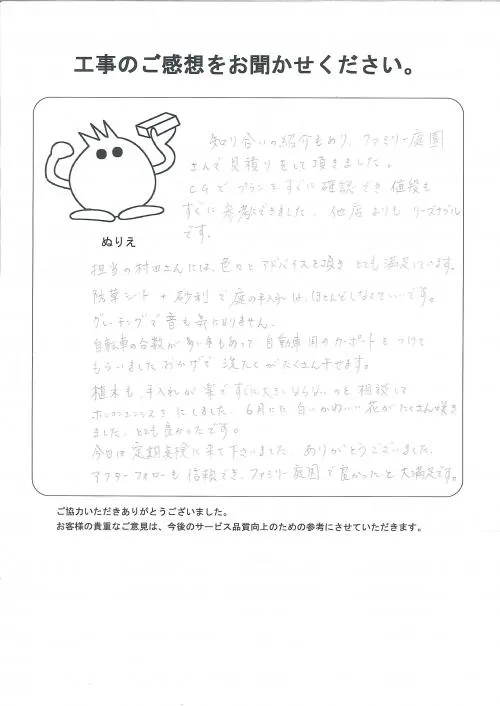 工事のご感想をお聞かせください。
知り合いの紹介もあり、ファミリー庭園
さんで見積りをして頂きました。
CGでプランをすぐに確認でき値段も
すぐに参考にできました。他店よりもリーズナブル
です。
ぬりえ
担当の村田さんには、色々とアドバイスを頂きとても満足しています。
防草シート+砂利で庭の手入れは、ほとんどしなくていいです。
グレーチングで音も気になりません。
自転車の台数が多い事もあって自動車用のカーポートをつけて
もらいましたおかげで洗たくがたくさん干せます。
植木も、手入れが楽ですぐに大きくならないのを相談して
ホンコンエンシスにしました。6月にに白いかわいい花がたくさん咲き
ました。とても良かったです。
今日は定期点検に来て下さいました。ありがとうございました。
アフターフォローも信頼でき、ファミリー庭園で良かったと大満足です。
ご協力いただきありがとうございました。
お客様の貴重なご意見は、今後のサービス品質向上のための参考にさせていただきます。